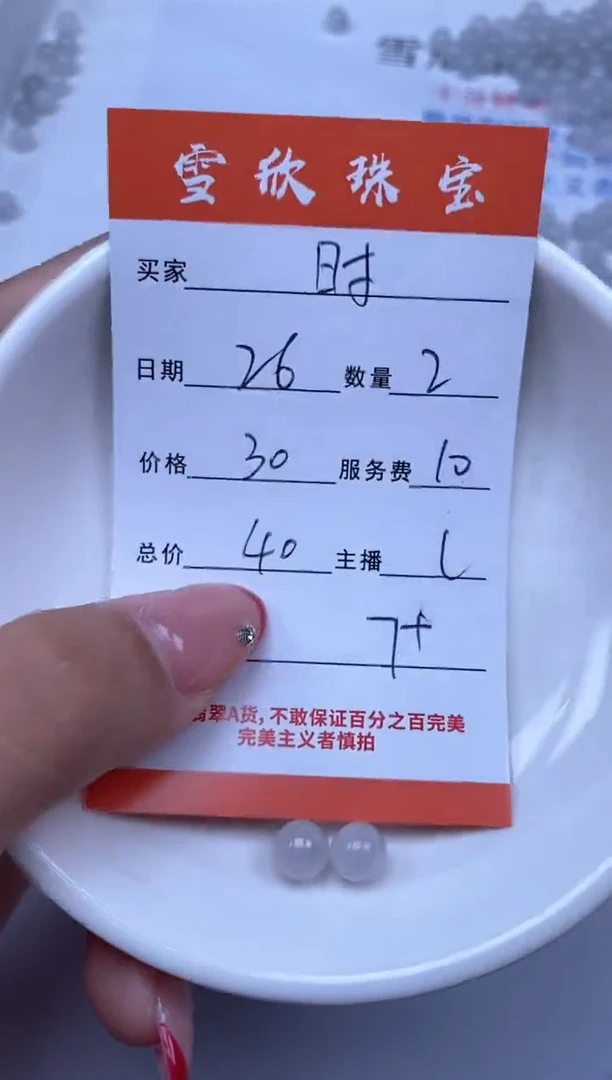 雪欣珠宝
买家 时
日期 26 数量 2
价格 30 服务费 10
总价 40 主播 L
7+
翡翠A货,不敢保证百分之百完美
完美主义者慎拍